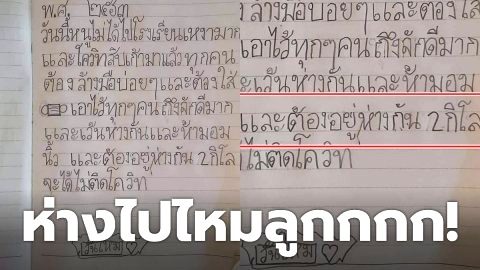 พ.ศ. ๒๕๖๓
วันนี้หนูไม่ได้ไปโรงเรียนเหงามาก
และโควิทสับเก้ามาแล้วทุกคน
ต้องล้างมือบ่อยๆและต้องใส่
เอาไว้ทุกๆคนถึงลักดีมาก
และเว้นห่างกันและห้ามอม
นิ้ว และต้องอยู่ห่างกัน 2กิโล
จะได้ไม่ติดโควิท
วันใหม่
ล้างมือบ่อยๆและต้องใส่
เอาไว้ทุกๆคนถึงลักดีมาก
และเว้นห่างกันและห้ามอม
และต้องอยู่ห่างกัน 2กิโล
ได้ไม่ติดโควิท
วันใหม่
ห่างไปไหมลูกกกกก!